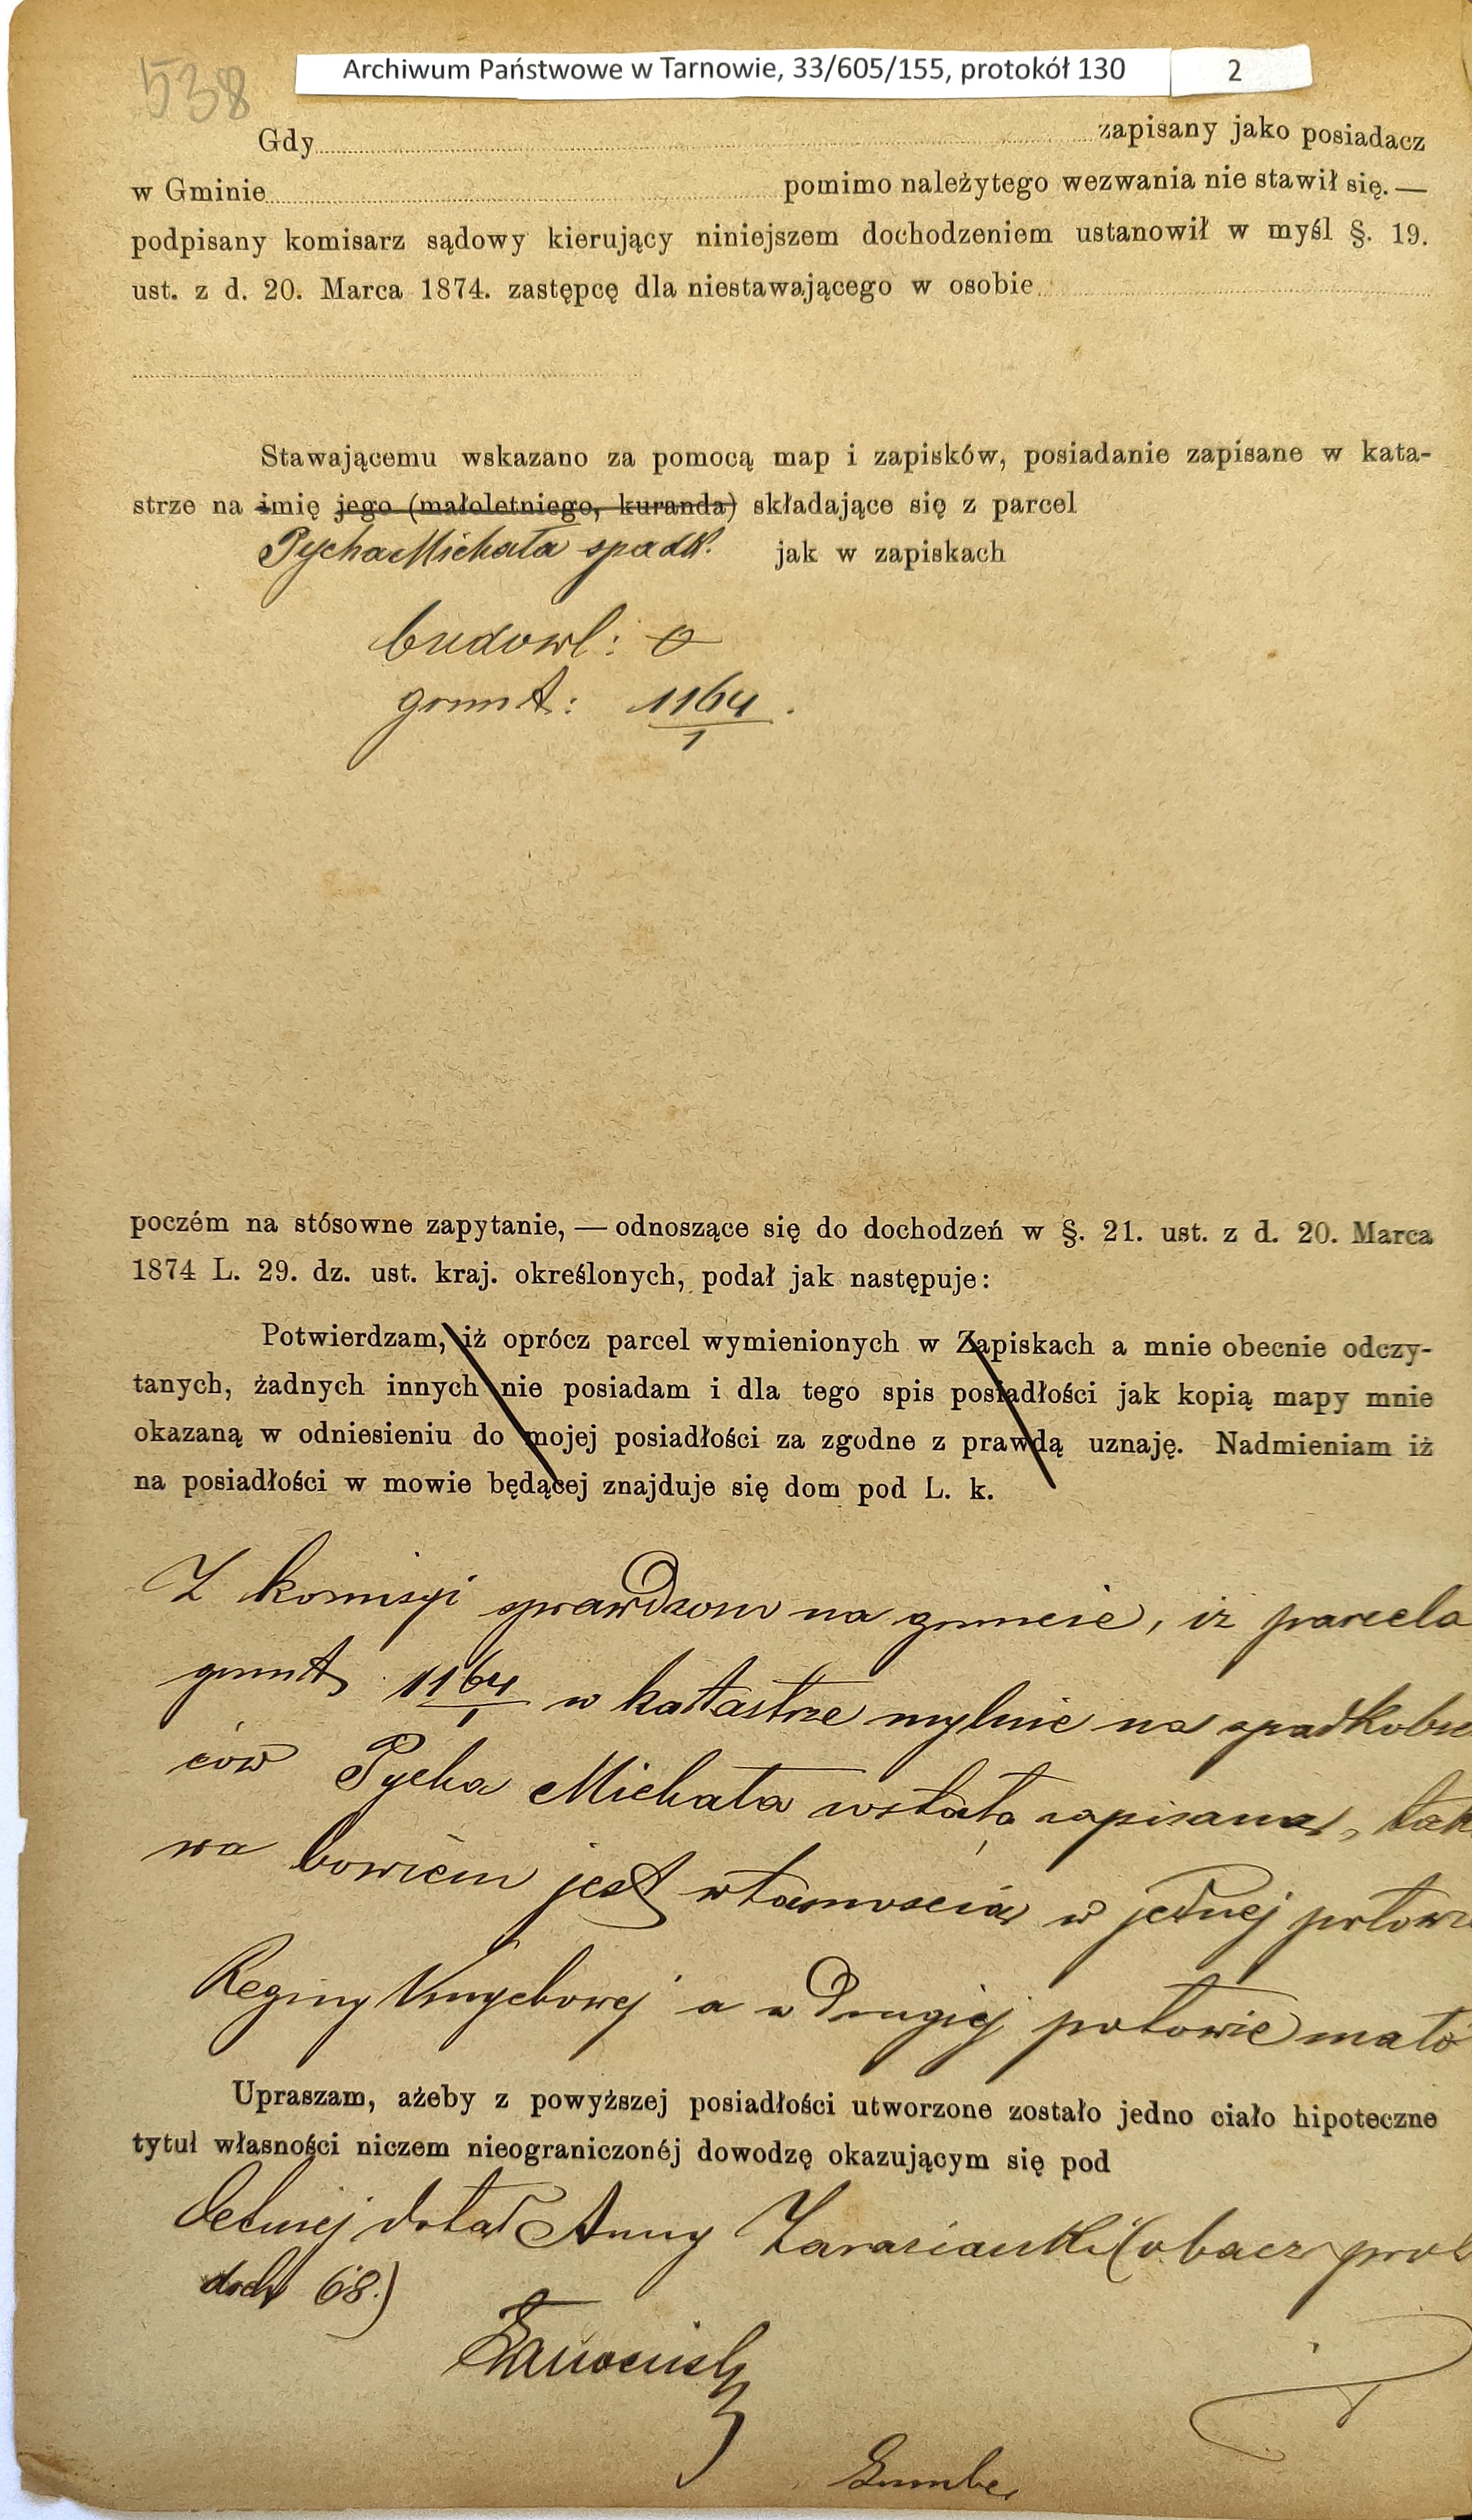 538
Archiwum Państwowe w Tarnowie, 33/605/155, protokół 130 2
Gdy zapisany jako posiadacz
w Gminie pomimo należytego wezwania nie stawił się. —
podpisany komisarz sądowy kierujący niniejszem dochodzeniem ustanowił w myśl §. 19.
ust. z d. 20. Marca 1874. zastępcę dla niestawającego w osobie
Stawającemu wskazano za pomocą map i zapisków, posiadanie zapisane w kata-
strze na imię jego (małoletniego, kuranda) składające się z parcel
Pycha Michała spadk. jak w zapiskach
budowl: 0
grunt: 1164/1.
poczém na stósowne zapytanie, — odnoszące się do dochodzeń w §. 21. ust. z d. 20. Marca
1874 L. 29. dz. ust. kraj. określonych, podał jak następuje:
Potwierdzam, iż oprócz parcel wymienionych w Zapiskach a mnie obecnie odczy-
tanych, żadnych innych nie posiadam i dla tego spis posiadłości jak kopią mapy mnie
okazaną w odniesieniu do mojej posiadłości za zgodne z prawdą uznaję. Nadmieniam iż
na posiadłości w mowie będącej znajduje się dom pod L. k.
Z komisyi sprawdzono na gruncie, iż parcela
grunt 1164/1 w katastrze mylnie na spadkobier
ców Pycha Michała została zapisana, tak
wa bowiem jest własnością w jednej połowie
Reginy Kmychowej a w drugiej połowie mało
Upraszam, ażeby z powyższej posiadłości utworzone zostało jedno ciało hipoteczne
tytuł własności niczem nieograniczonéj dowodzę okazującym się pod
letniej dotąd Anny Zarazianki (obacz prot
doch 68.)